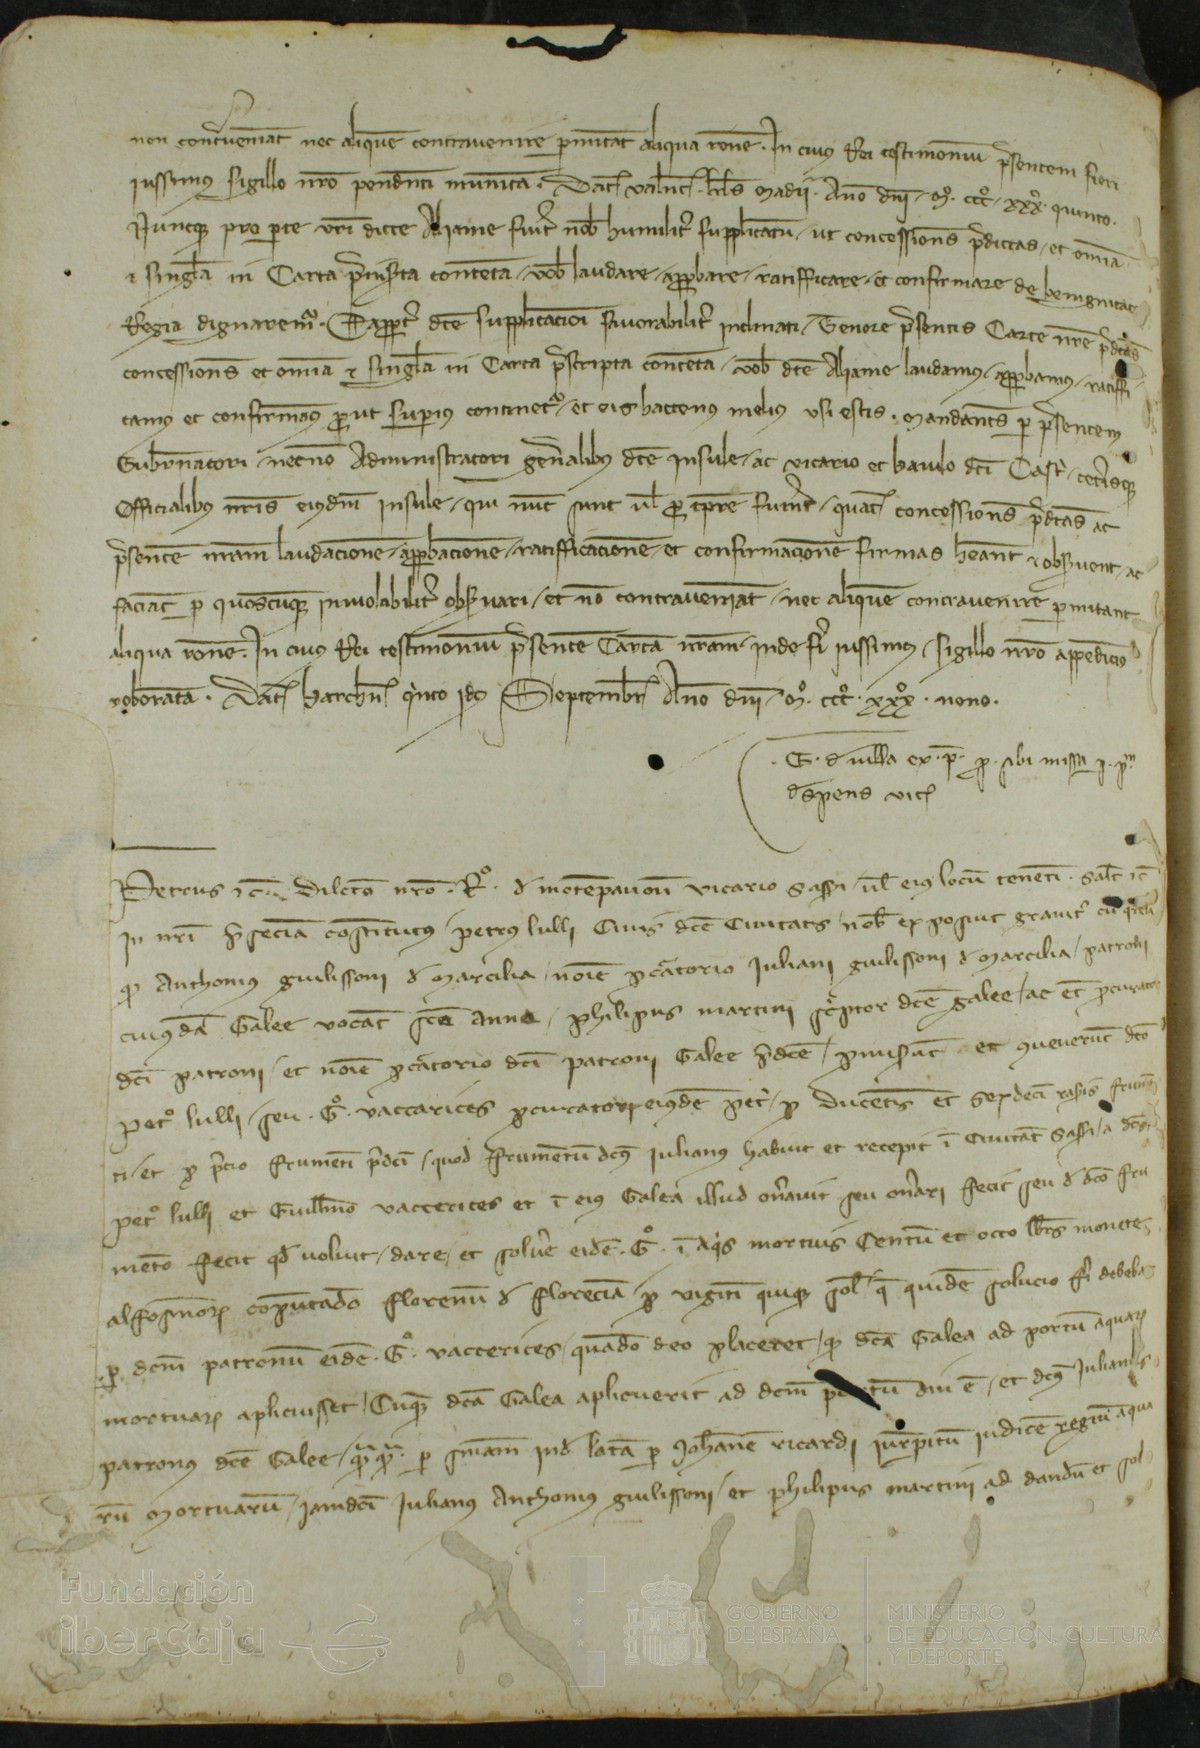 non contraveniat nec aliquem contravenire permittat aliqua rone. In cuius Rei testimonium presentem fieri
iussimus sigillo nro pendenti munita. Dat Madii Anno dni M ccc xxx quinto.
Nuncque pro parte vri dicte Aliame fuit nob humilit supplicatu ut concessions predictas et omnia
et singula in Carta preinserta contenta vob laudare approbare ratifficare et confirmare de benignitate
Regia dignaremur. dce supplicacioni favorabilit inclinati Tenore presentis Carte nre predictas
concessions et omnia et singula in Carta prescripta contenta vob dce Aliame laudamus approbamus ratiffi
camus et confirmamus prout superius continetur et eis hactenus melius usi estis. Mandantes per presentem
Gubernatori necno Administratori generalibus dce Insule ac vicario et baiulo dci Castri ceterisque
Officialibus nris eiusdem Insule qui nunc sunt vel pro tempore fuerint quat concessions predictas ac
presentem nram laudacione approbacione ratifficacione et confirmacione firmas heant et observent ac
faciant per quoscumque inviolabilit observari et no contraveniat nec aliquem contravenire permittant
aliqua rone. In cuius Rei testimonium presente Carta nram inde fieri iussimus sigillo nro appendicio
roborata. Dat barchn quinto idus Septembr Anno dni M ccc xxx nono.
G. d villa ex p. sibi missa
Petrus etc. Dilecto nro R d montepavon vicario Sassi vel eius locum tenenti. Salt etc
In nri presencia constitutus petrus lulli Civis dce Civitatis nob exposuit gravit cum querela
quod Anthonius guilissoni d marcilia noie procuratorio Iuliani guilissoni d marcilia patroni
cuiusda Galee vocat sca Anna philipus martini scriptor dce galee ac et procurator
dci patroni et noie procuratorio dci patroni Galee predce promiserunt et convenerunt dco
Pet lulli seu G vaccarices procuratori eiusde pet pro Ducentis et sexdeci rasis frumen
ti et pro precio frumenti predci quod frumentu dcus Iulianus habuit et recepit i Civitat Sassi a dco
pet lulli et Guillmo vaccerices et i eius Galea illud oneravit seu onerari fecit seu d dco fru
mento fecit quod voluit dare et solvere eide G i aquis mortuis Centum et octo lbrs monete
alfonsinor computado florenu d florecia pro viginti quinque sol que quide solucio fieri debebat
per dcm patronu eide G vaccerices quando deo placeret quod dca Galea ad portu aquar
mortuar aplicuisset Cumque dca Galea aplicuerit ad dcm portu diu e et dcus Iulianus
patronus dce Galee per sniam inde lata per Iohane ricardi iurisperitu iudice regiu aqua
ru mortuaru iamdci Iulianus Anthonius guilissoni et philipus martini ad dandu et sol
Fundación
iberCaja
GOBIERNO
DE ESPAÑA
MINISTERIO
DE EDUCACIÓN, CULTURA
Y DEPORTE